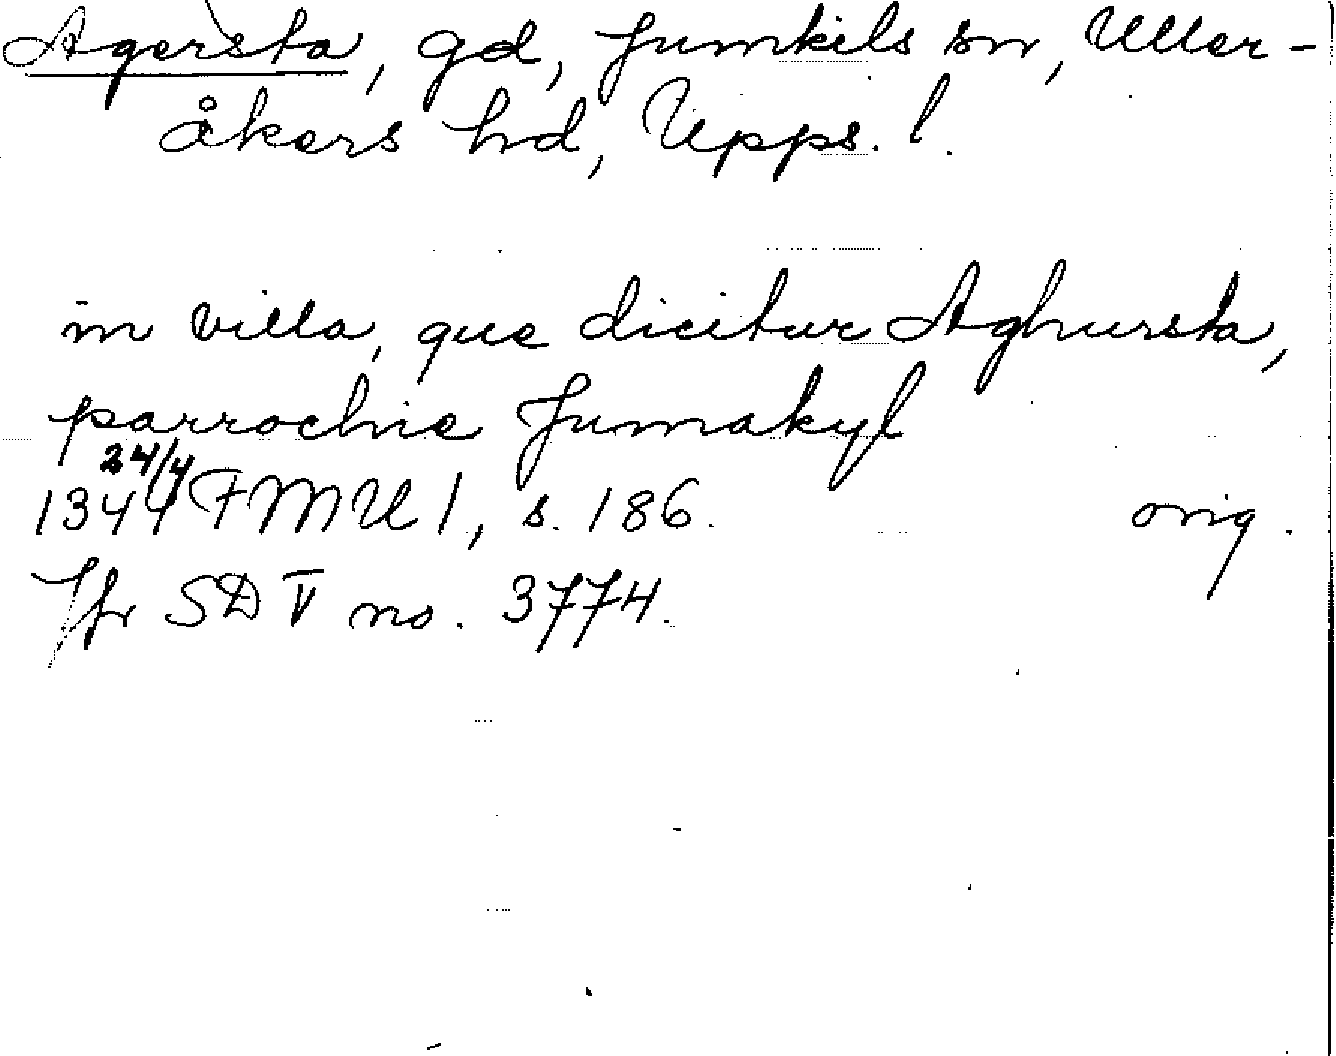 Agersta, gd, Jumkils sn, Uller-
åkers hd, Upps. l.
in villa, que dicitur Aghursta,
parrochie Jumakyl
24/4
1344 FMU 1, s. 186. orig.
Jfr SD V no. 3774.